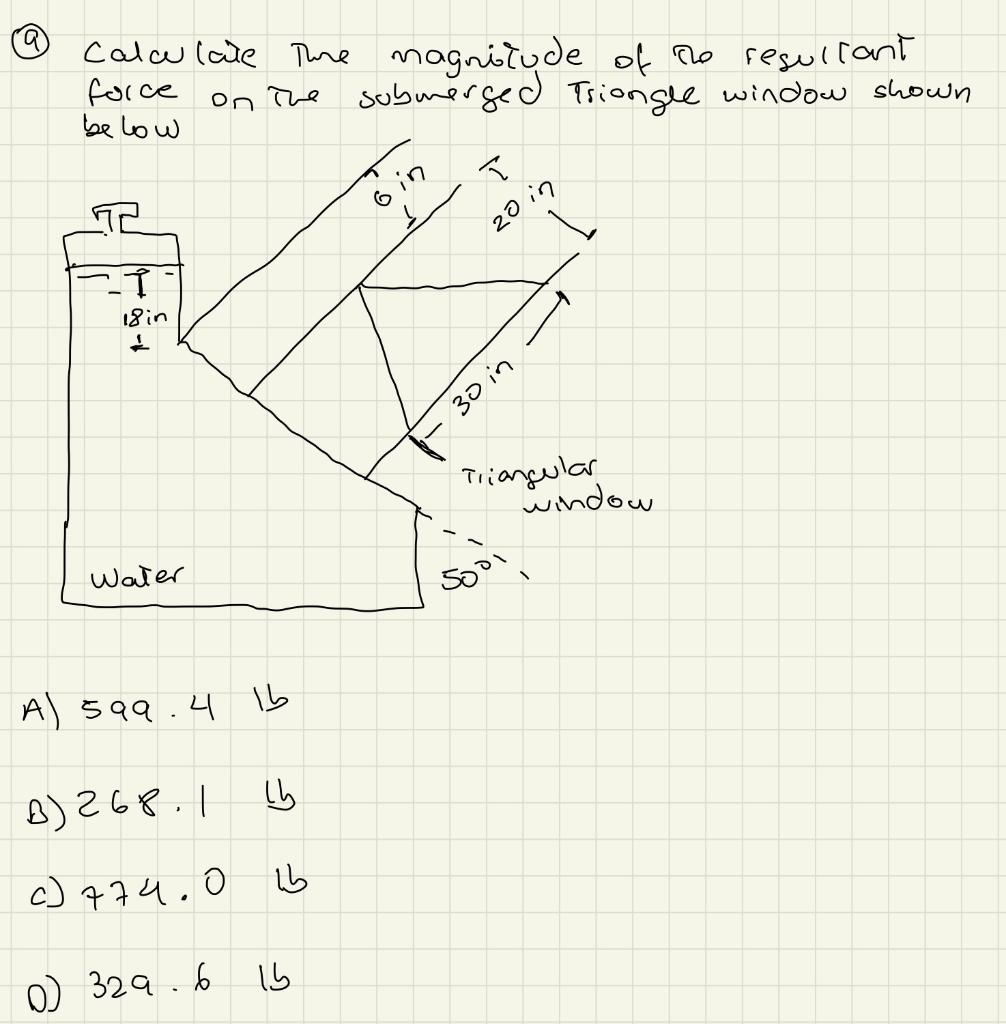 9 Calculate the magnitude of the resultant
force on the submerged Triangle window shown
below
6 in
20 in
18in
30 in
Triangular
window
Water
50°
A) 599.4 lb
B) 268.1 lb
C) 774.0 lb
D) 329.6 lb